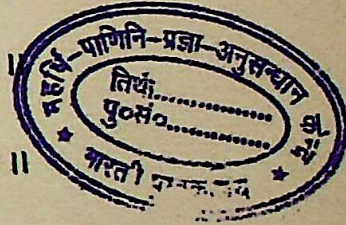 ॥
महर्षि-पाणिनि-प्रज्ञा-अनुसन्धान
तिथि..............
पु०सं०..............
॥
★ भारती ★